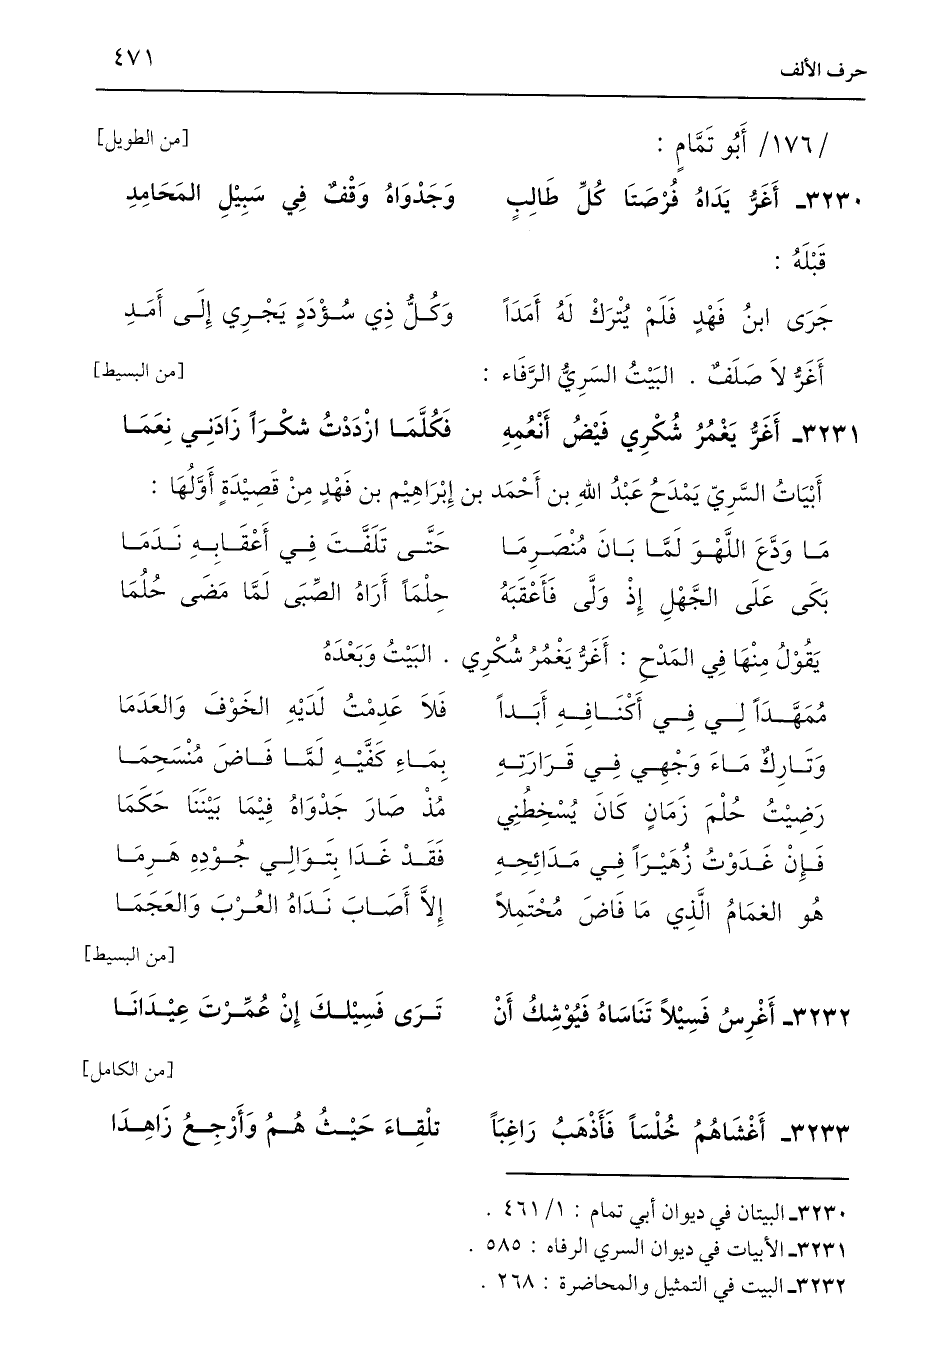 حرف الألف ٤٧١
/١٧٦/ أَبُو تَمَّامٍ : [من الطويل]
٣٢٣٠ـ أَغَرُّ يَدَاهُ فُرْصَتَا كُلِّ طَالِبٍ وَجَدْوَاهُ وَقْفٌ فِي سَبِيْلِ المَحَامِدِ
قَبْلَهُ :
جَرَى ابنُ فَهْدٍ فَلَمْ يُتْرَكْ لَهُ أَمَدَاً وَكُلُّ ذِي سُؤْدَدٍ يَجْرِي إِلَى أَمَدِ
أَغَرُّ لاَ صَلَفٌ . البَيْتُ السَرِيُّ الرَّفَاء : [من البسيط]
٣٢٣١ـ أَغَرُّ يَغْمُرُ شُكْرِي فَيْضُ أَنْعُمِهِ فَكُلَّمَا ازْدَدْتُ شكْرَاً زَادَنِي نِعَمَا
أَبْيَاتُ السَّرِيّ يَمْدَحُ عَبْدُ اللهِ بن أَحْمَد بن إِبْرَاهِيْم بن فَهْدٍ مِنْ قَصِيْدَةٍ أَوَّلُهَا :
مَا وَدَّعَ اللَّهْوَ لَمَّا بَانَ مُنْصَرِمَا حَتَّى تَلَفَّتَ فِي أَعْقَابِهِ نَدَمَا
بَكَى عَلَى الجَّهْلِ إِذْ وَلَّى فَأَعْقَبَهُ حِلْمَاً أَرَاهُ الصِّبَى لَمَّا مَضَى حُلُمَا
يَقُوْلُ مِنْهَا فِي المَدْحِ : أَغَرُّ يَغْمُرُ شُكْرِي . البَيْتُ وَبَعْدَهُ
مُمَهَّدَاً لِي فِي أَكْنَافِهِ أَبَدَاً فَلاَ عَدِمْتُ لَدَيْهِ الخَوْفَ وَالعَدَمَا
وَتَارِكٌ مَاءَ وَجْهِي فِي قَرَارَتِهِ بِمَاءِ كَفَّيْهِ لَمَّا فَاضَ مُنْسَجِمَا
رَضِيْتُ حُلْمَ زَمَانٍ كَانَ يُسْخِطُنِي مُذْ صَارَ جَدْوَاهُ فِيْمَا بَيْنَنَا حَكَمَا
فَإِنْ غَدَوْتُ زُهَيْرَاً فِي مَدَائِحِهِ فَقَدْ غَدَا بِتَوَالِي جُوْدِهِ هَرِمَا
هُو الغمَامُ الَّذِي مَا فَاضَ مُحْتمِلاً إِلاَّ أَصَابَ نَدَاهُ العُرْبَ وَالعَجَمَا
[من البسيط]
٣٢٣٢ـ أَغْرِسُ فَسِيْلاً تَنَاسَاهُ فَيُوْشِكُ أَنْ تَرَى فَسِيْلكَ إِنْ عُمِّرْتَ عِيْدَانَا
[من الكامل]
٣٢٣٣ـ أَغْشَاهُمُ خُلْسَاً فَأَذْهَبُ رَاغِبَاً تلْقِاءَ حَيْثُ هُم وَأَرْجِعُ زَاهِدَا
٣٢٣٠ـ البيتان في ديوان أبي تمام : ١/ ٤٦١ .
٣٢٣١ـ الأبيات في ديوان السري الرفاه : ٥٨٥ .
٣٢٣٢ـ البيت في التمثيل والمحاضرة : ٢٦٨ .